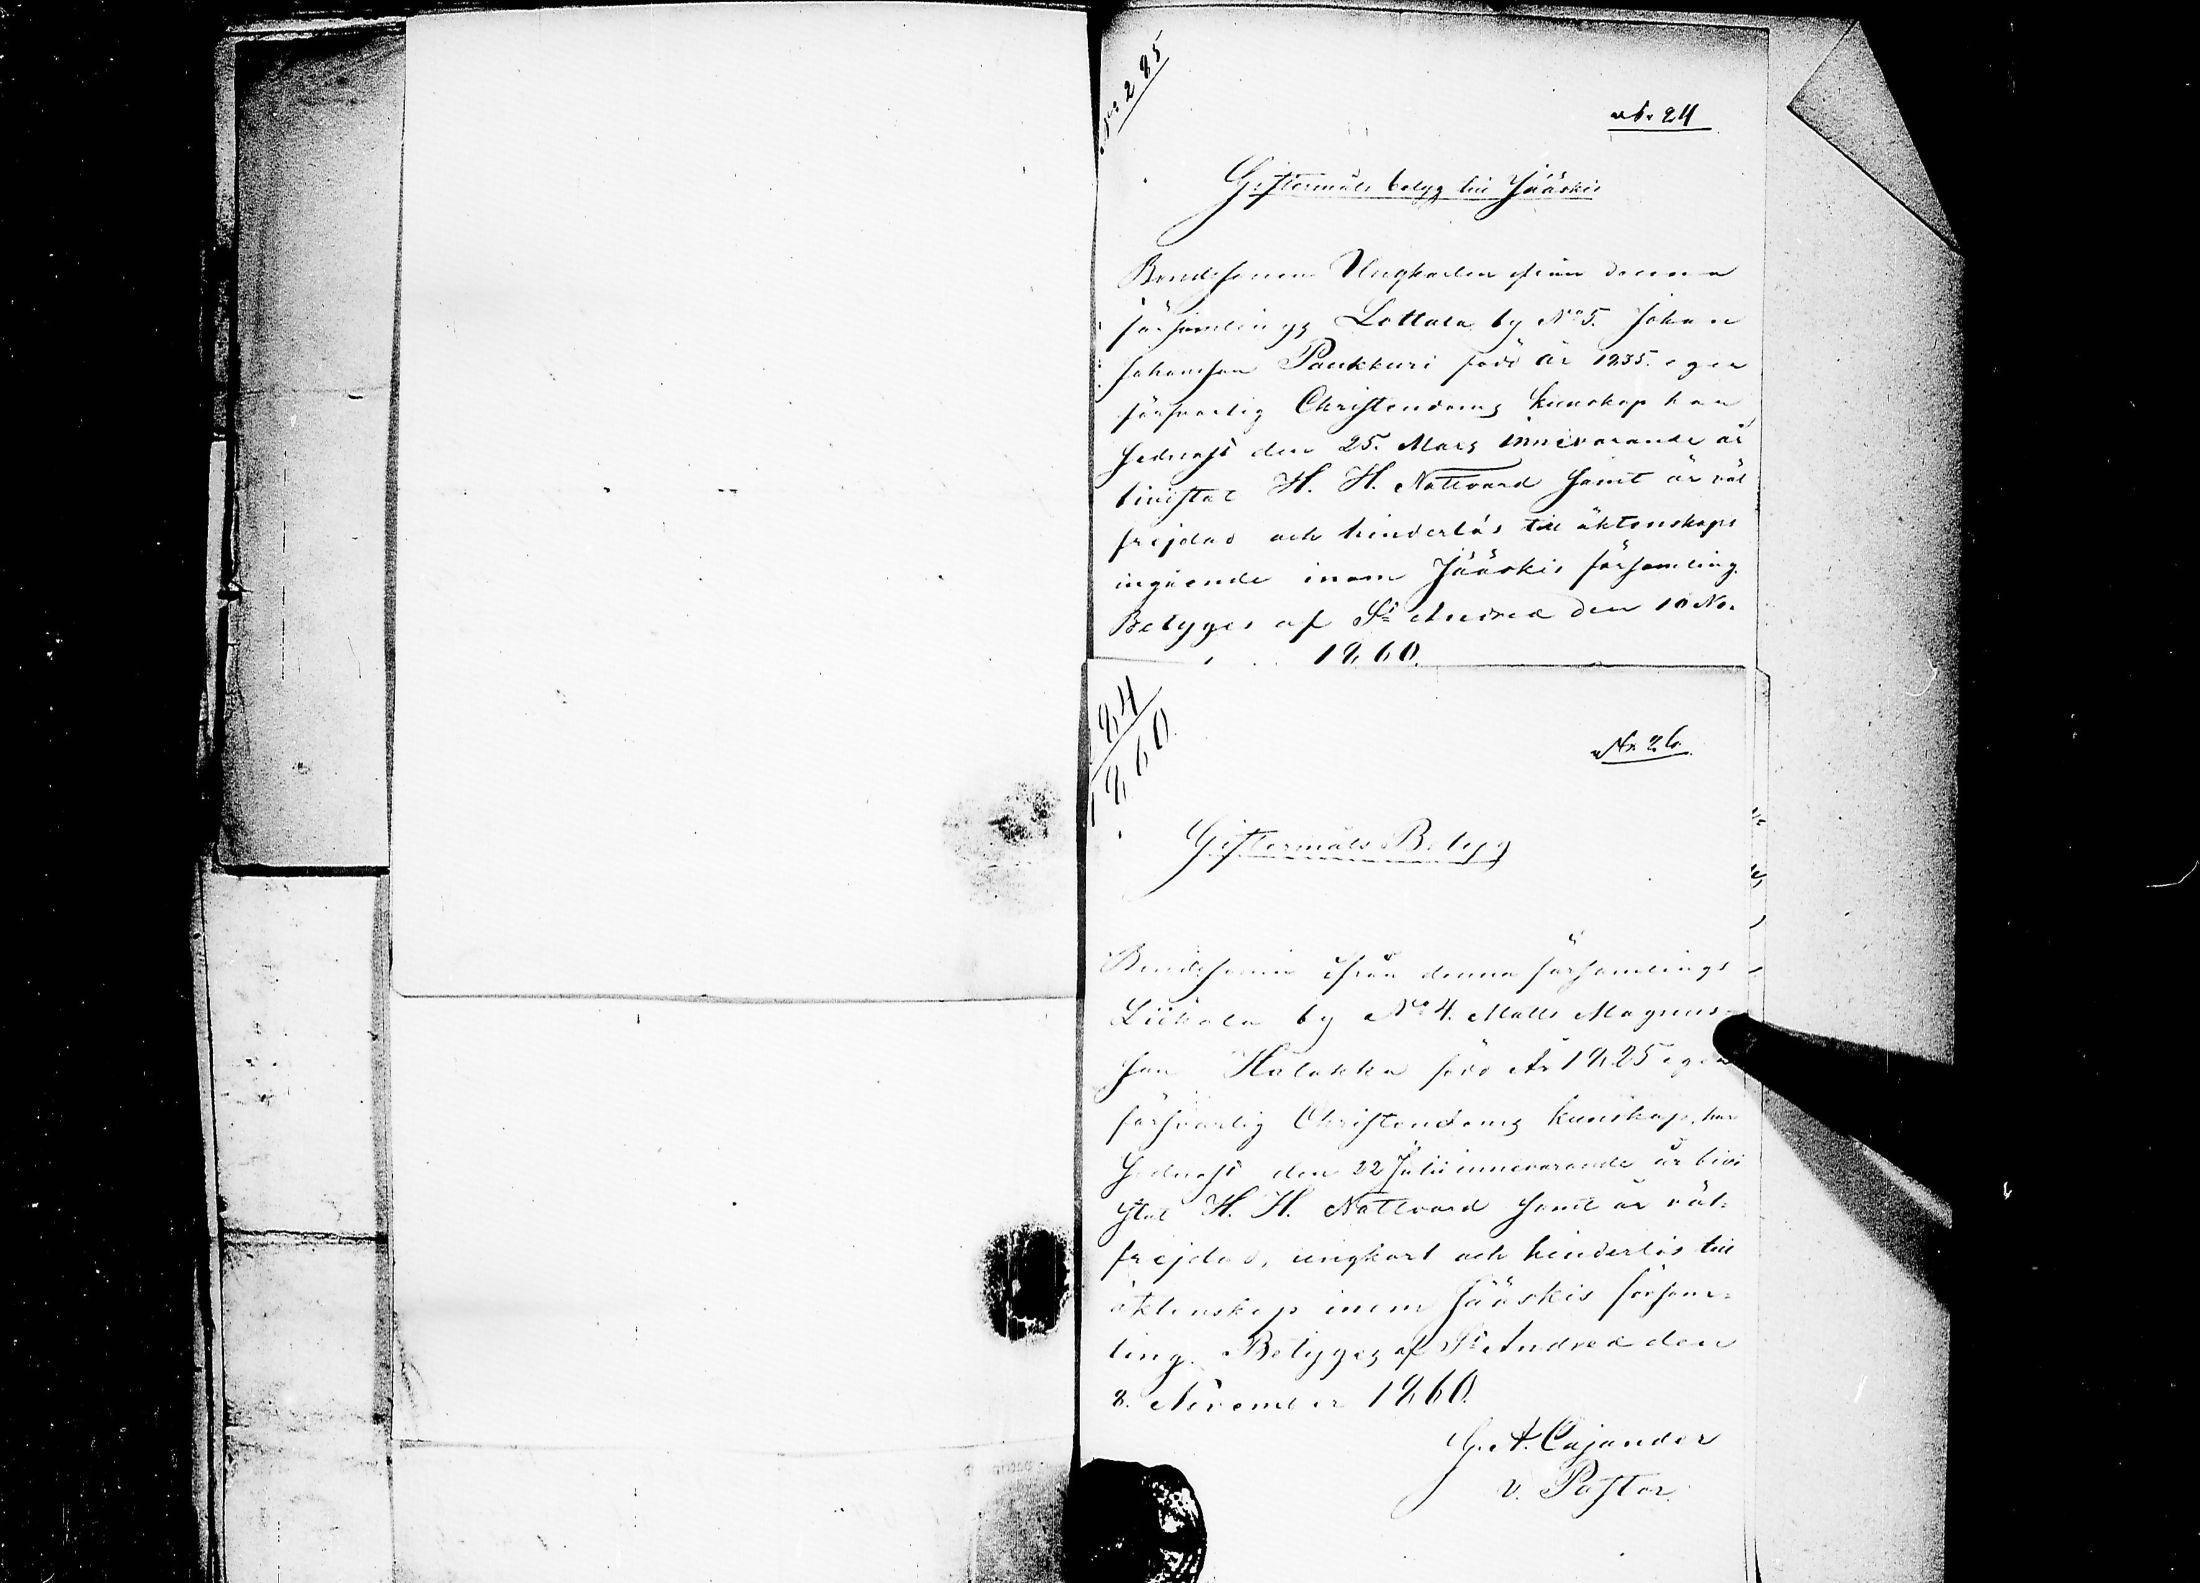 No 285
No 24
Giftermåls betyg till Jääskis
Bondesonen Ungkarlen ifrån denna
församlings Lottala by No 5. Johan
Johansson Paukkuri född år 1835. eger
försvarlig Christendoms kunskap har
sednast den 25. Mars innevarande år
bivistat H. H. Nattvard samt är väl
frejdad och hinderlös till äktenskaps
ingående inom Jääskis församling.
Betyges af St Andreæ den 10 No.
1860.
84
1860.
No 26.
Giftermåls Betyg
Bondesonen ifrån denna församlings
Liikola by No 4. Matts Magnus-
son Halakka född År 1825 eger
försvarlig Christendoms kunskap, har
sednast den 22 Julii innevarande år bivi
stat H. H. Nattvard samt är väl-
frejdad, ungkarl och hinderlös till
äktenskap inom Jääskis försam-
ling. Betyges af St Andreæ den
8. November 1860.
G. A. Cajander
v. Pastor.